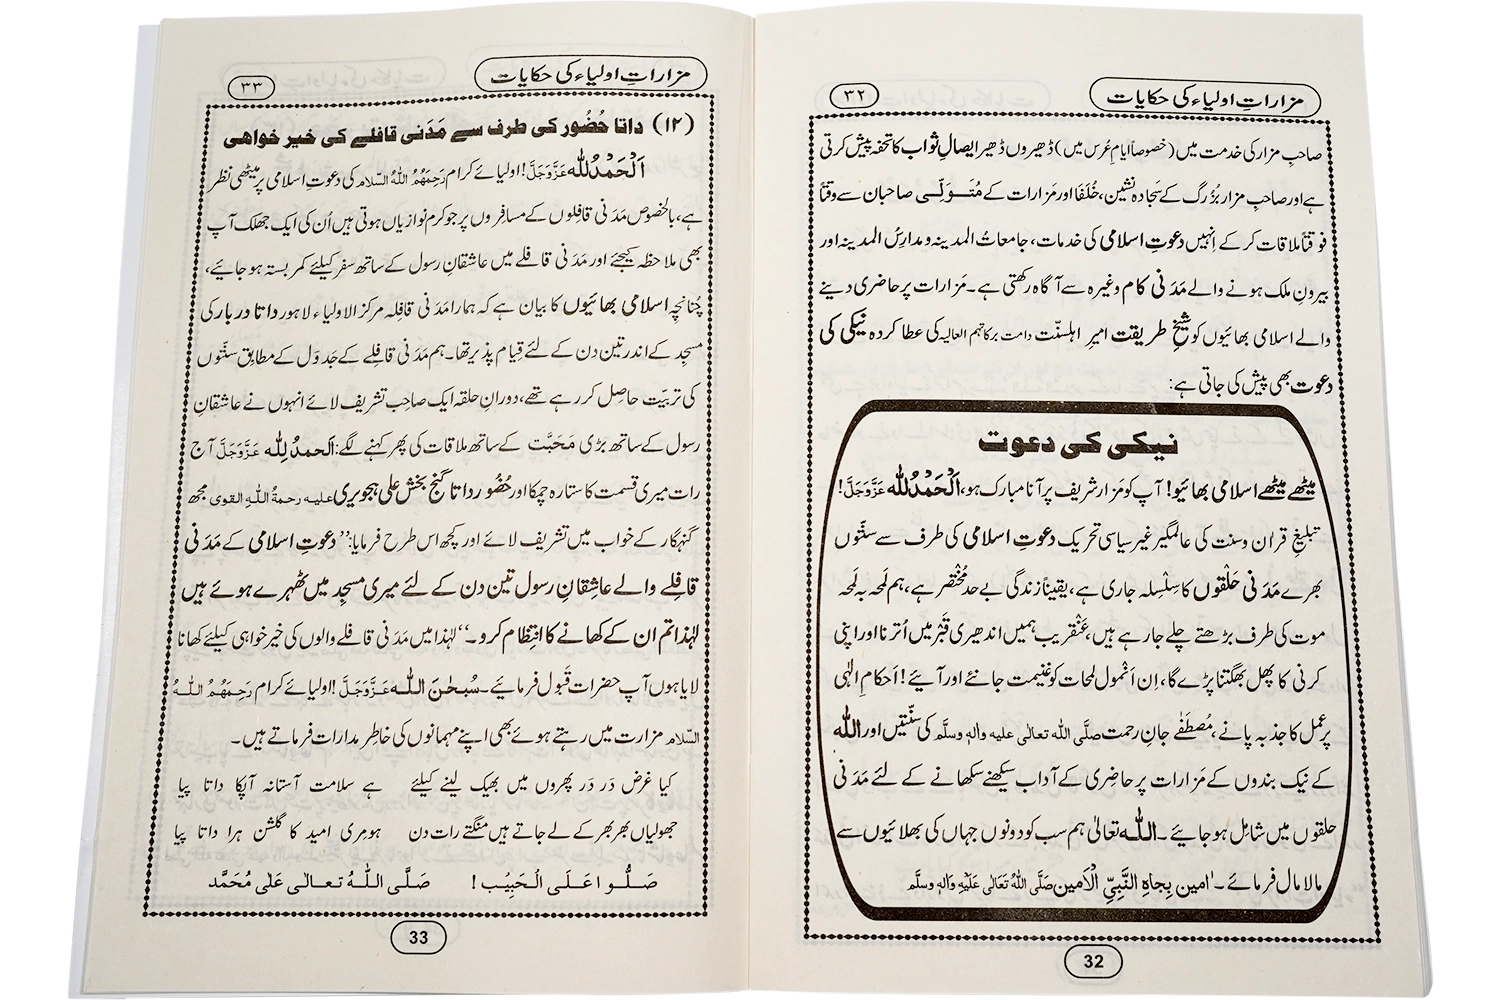 مزاراتِ اولیاء کی حکایات
۳۲
صاحبِ مزار کی خدمت میں (خصوصاً ایامِ عُرس میں) ڈھیروں ڈھیر ایصالِ ثواب کا تحفہ پیش کرتی
ہے اور صاحبِ مزار بُزُرگ کے سَجادہ نشین، خُلَفا اور مَزارات کے مُتَوَلّی صاحبان سے وقتاً
فوقتاً ملاقات کر کے اِنہیں دعوتِ اسلامی کی خدمات، جامعاتُ المدینہ و مدارسُ المدینہ اور
بیرونِ ملک ہونے والے مَدَنی کام وغیرہ سے آگاہ رکھتی ہے۔ مَزارات پر حاضری دینے
والے اسلامی بھائیوں کو شیخِ طریقت امیرِ اہلسنّت دامت برکاتہم العالیہ کی عطا کردہ نیکی کی
دعوت بھی پیش کی جاتی ہے:
نیکی کی دعوت
میٹھے میٹھے اسلامی بھائیو! آپ کو مَزار شریف پر آنا مبارک ہو، اَلْحَمْدُلِلّٰہ عَزَّوَجَلَّ!
تبلیغِ قران وسنت کی عالمگیر غیر سیاسی تحریک دعوتِ اسلامی کی طرف سے سنّتوں
بھرے مَدَنی حَلْقوں کا سِلْسِلہ جاری ہے، یقیناً زندگی بے حد مُخْتَصر ہے، ہم لمحہ بہ لمحہ
موت کی طرف بڑھتے چلے جارہے ہیں، عَنْقریب ہمیں اندھیری قَبْر میں اُترنا اور اپنی
کرنی کا پھل بھگتنا پڑے گا، اِن اَنْمول لمحات کو غنیمت جانئے اور آیئے! اَحکامِ الٰہی
پر عمل کا جذبہ پانے، مُصطَفٰے جانِ رحمت صلَّی اللہ تعالٰی علیہ والہٖ وسلَّم کی سنّتیں اور اللہ
کے نیک بندوں کے مَزارات پر حاضِری کے آداب سیکھنے سکھانے کے لئے مَدَنی
حلقوں میں شامِل ہوجایئے۔ اللہ تعالیٰ ہم سب کو دونوں جہاں کی بھلائیوں سے
مالا مال فرمائے۔ اٰمین بِجاہِ النَّبِیِّ الْاَمین صَلَّی اللہُ تَعَالٰی عَلَیْہِ وَاٰلِہٖ وسلَّم
32
مزاراتِ اولیاء کی حکایات
۳۳
(۱۲) داتا حُضُور کی طرف سے مَدَنی قافلے کی خیر خواہی
اَلْحَمْدُلِلّٰہ عَزَّوَجَلَّ! اولیائے کرام رَحِمَہُمُ اللہُ السَّلام کی دعوتِ اسلامی پر میٹھی نظر
ہے، بالخصوص مَدَنی قافِلوں کے مسافروں پر جو کرم نوازیاں ہوتی ہیں اُن کی ایک جھلک آپ
بھی ملاحظہ کیجئے اور مَدَنی قافلے میں عاشقانِ رسول کے ساتھ سفر کیلئے کمر بستہ ہوجائیے،
چُنانچہ اسلامی بھائیوں کا بیان ہے کہ ہمارا مَدَنی قافِلہ مرکز الاولیاء لاہور داتا دربار کی
مسجِد کے اندر تین دن کے لئے قِیام پذیر تھا۔ ہم مَدَنی قافِلے کے جَدوَل کے مطابِق سنّتوں
کی تربیّت حاصِل کر رہے تھے، دورانِ حلقہ ایک صاحِب تشریف لائے انہوں نے عاشقانِ
رسول کے ساتھ بڑی مَحَبَّت کے ساتھ ملاقات کی پھر کہنے لگے: اَلحمدُ لِلّٰہ عَزَّوَجَلَّ آج
رات میری قسمت کا ستارہ چمکا اور حُضُور داتا گنج بخش علی ہجویری علیہ رحمۃُ اللہِ القوی مجھ
گنہگار کے خواب میں تشریف لائے اور کچھ اس طرح فرمایا: ’’دعوتِ اسلامی کے مَدَنی
قافِلے والے عاشقانِ رسول تین دن کے لئے میری مسجِد میں ٹھہرے ہوئے ہیں
لہٰذا تم ان کے کھانے کا انتِظام کرو۔‘‘ لہٰذا میں مَدَنی قافلے والوں کی خیر خواہی کیلئے کھانا
لایا ہوں آپ حضرات قَبول فرمائیے۔ سُبحٰنَ اللہ عَزَّوَجَلَّ! اولیائے کرام رَحِمَہُمُ اللہُ
السَّلام مزارت میں رہتے ہوئے بھی اپنے مہمانوں کی خاطِر مدارات فرماتے ہیں۔
کیا غرض دَر دَر پھروں میں بھیک لینے کیلئے ہے سلامت آستانہ آپکا داتا پیا
جھولیاں بھر بھر کے لے جاتے ہیں منگتے رات دن ہو مِری امید کا گلشن ہرا داتا پیا
صَلُّوا عَلَی الْحَبِیْب! صَلَّی اللہُ تعالٰی عَلٰی مُحَمَّد
33